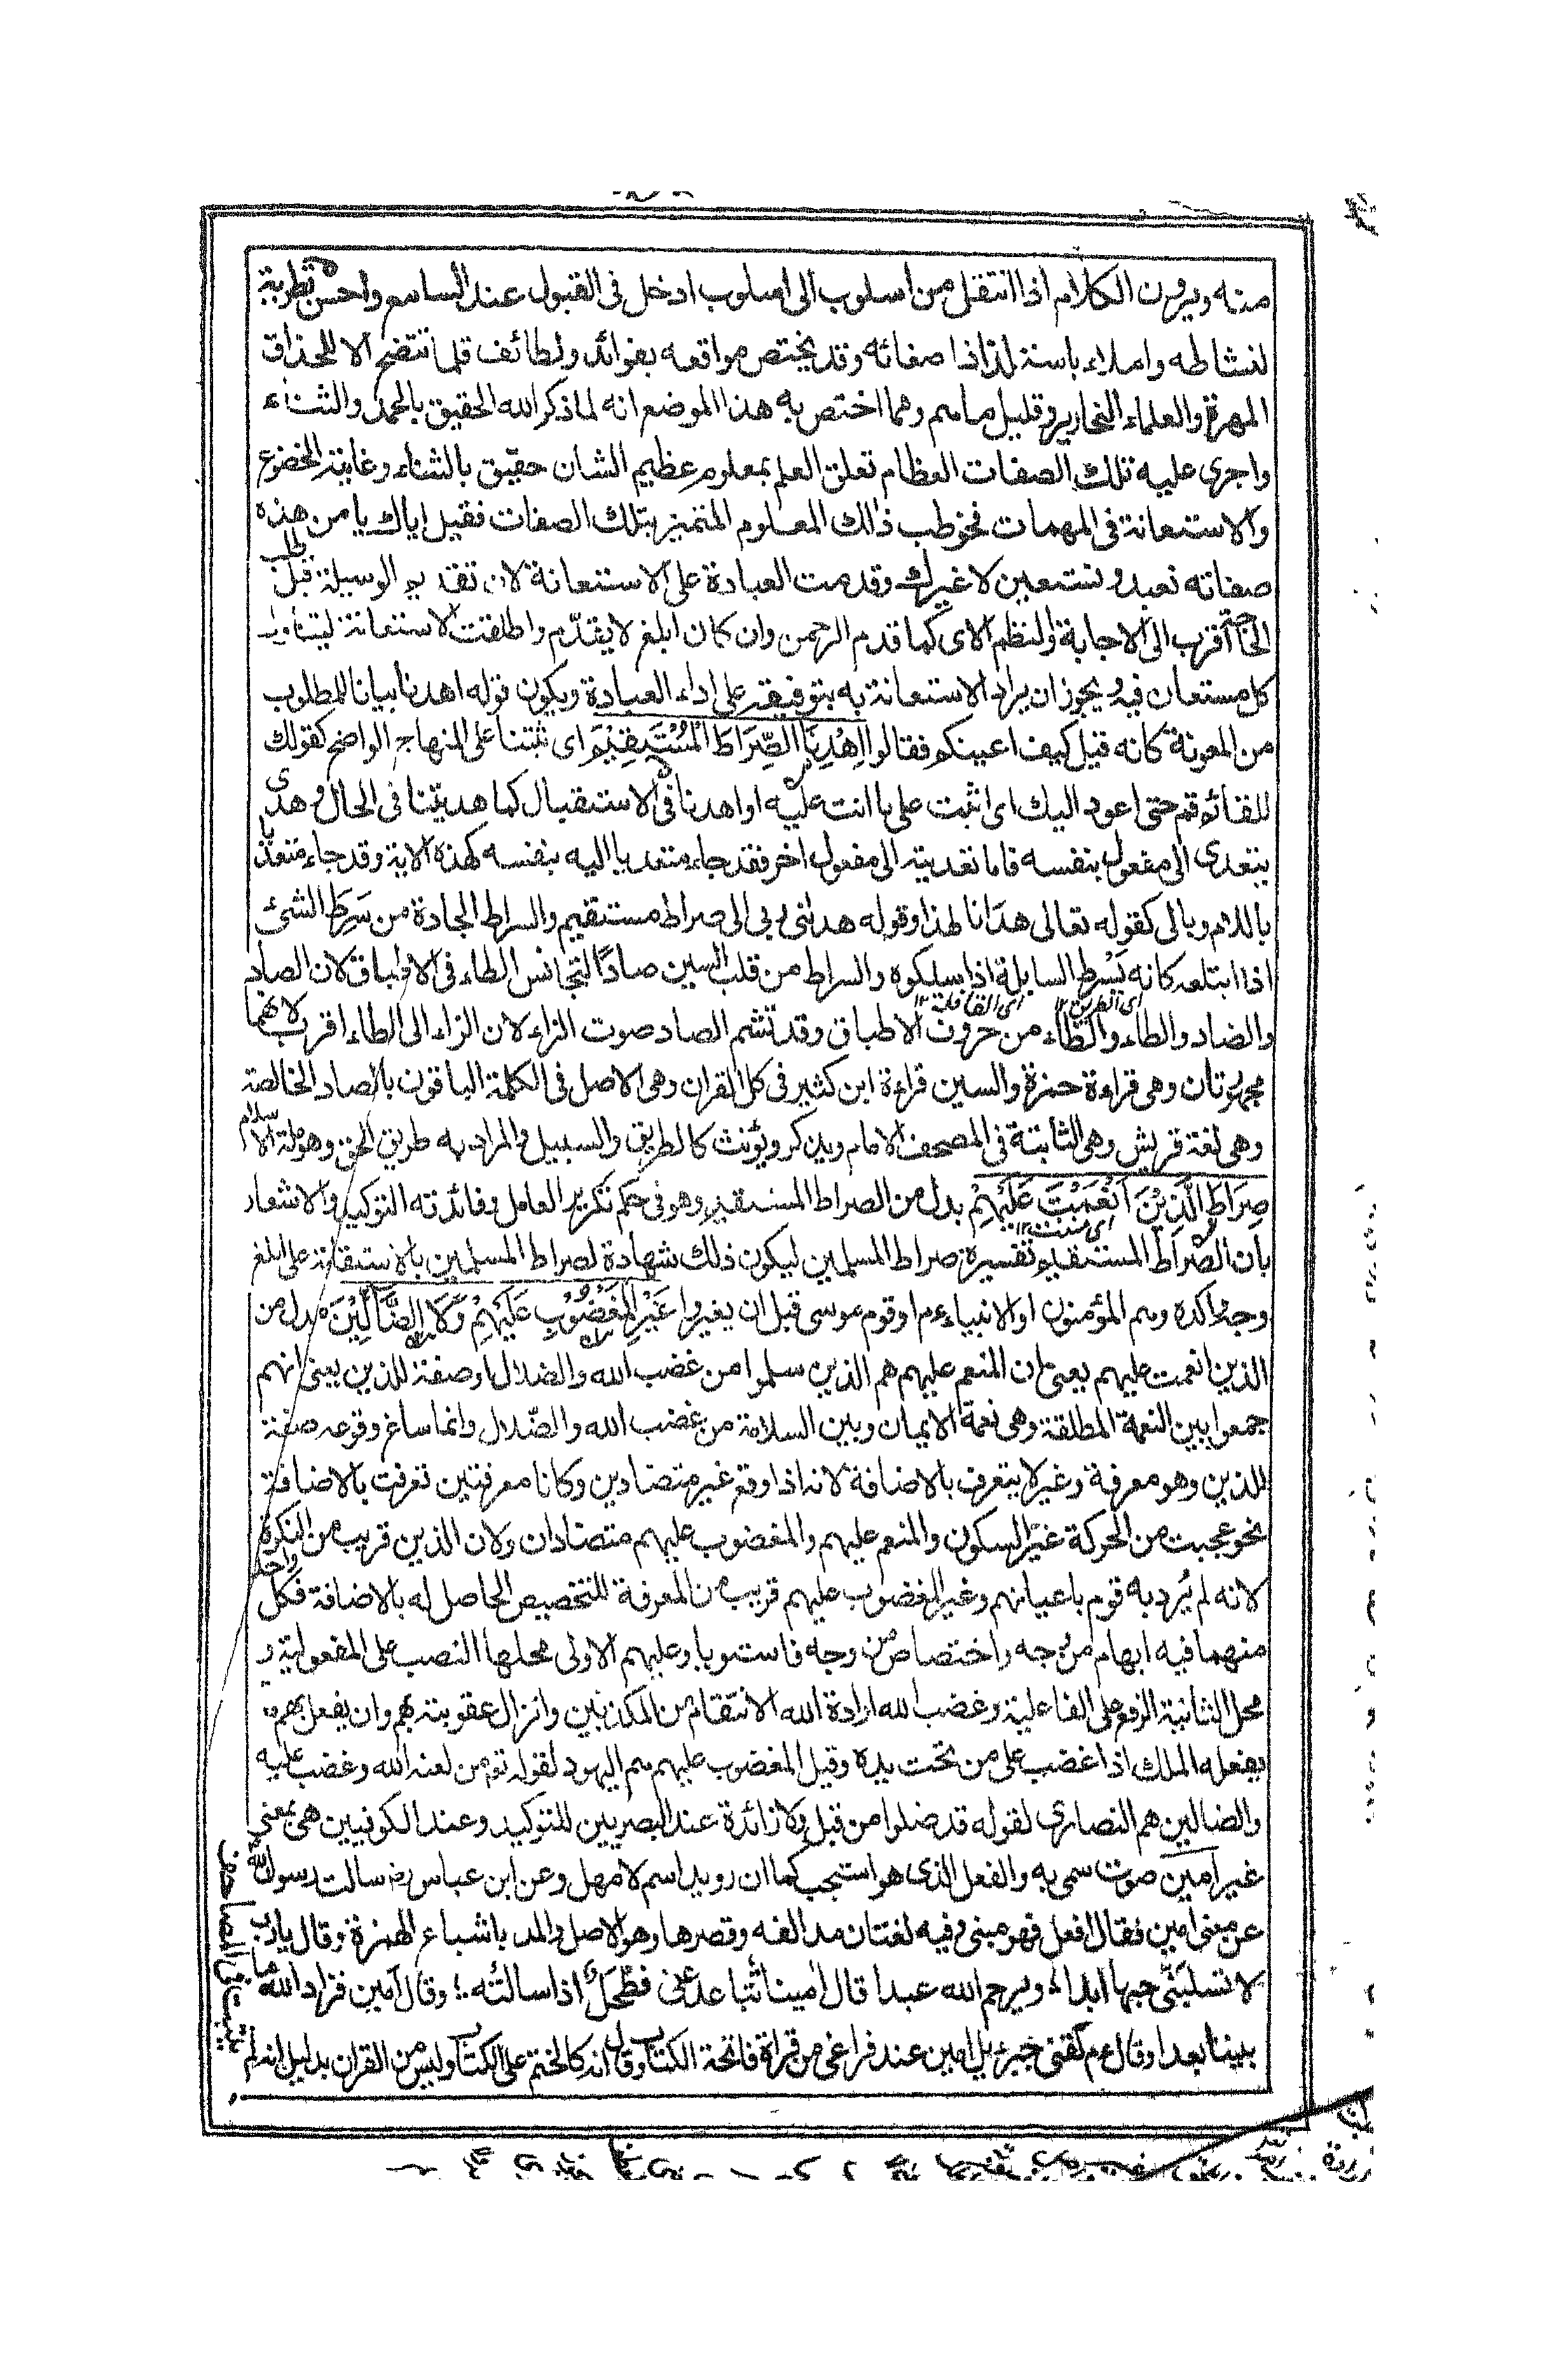 منه ويرون الكلام اذا انتقل من اسلوب الى اسلوب ادخل فى القبول عند السامع واحسن تطرية
لنشاطه واملاء باستلذاذ اصغائه وقد يختص مواقعه بفوائد ولطائف قلما تتضح الا للحذاق
المهرة والعلماء النحارير وقليل ما هم ومما اختص به هذا الموضع انه لما ذكر الله الحقيق بالحمد والثناء
واجرى عليه تلك الصفات العظام تعلق العلم بمعلوم عظيم الشان حقيق بالثناء وغاية الخضوع
والاستعانة فى المهمات فخوطب ذالك المعلوم المتميز بتلك الصفات فقيل اياك يا من هذه
صفاته نعبد ونستعين لا غيرك وقدمت العبادة على الاستعانة لان تقديم الوسيلة قبل طلب
الحاجة اقرب الى الاجابة ولنظم الاى كما قدم الرحمن وان كان ابلغ لا يقدم واطلقت الاستعانة ليتناول
كل مستعان فيه ويجوز ان يراد الاستعانة به بتوفيقه على اداء العبادة ويكون قوله اهدنا بيانا للمطلوب
من المعونة كانه قيل كيف اعينكم فقالوا اِهْدِنَا الصِّرَاطَ الْمُسْتَقِيْمَ اى ثبتنا على المنهاج الواضح كقولك
للقائم قم حتى اعود اليك اى اثبت على ما انت عليه او اهدنا فى الاستقبال كما هديتنا فى الحال وهدى
يتعدى الى مفعول بنفسه فاما تعديته الى مفعول اخر فقد جاء متعديا اليه بنفسه كهذه الاية وقد جاء متعديا
باللام وبالى كقوله تعالى هدانا لهذا وقوله هدانى ربى الى صراط مستقيم والسراط الجادة من سَرِطَ الشئ
اذا ابتلعه كانه يَسْرِط السابلة اذا سلكوه والسراط من قلب السين صادا لتجانس الطاء فى الاطباق لان الصاد
اى الطريق ١٢ اى القافلة ١٢
والضاد والطاء والظاء من حروف الاطباق وقد تشم الصاد صوت الزاء لان الزاء الى الطاء اقرب لانهما
مجهورتان وهى قراءة حمزة والسين قراءة ابن كثير فى كل القران وهى الاصل فى الكلمة الباقون بالصاد الخالصة
وهى لغة قريش وهى الثابتة فى المصحف الامام ويذكر ويؤنث كالطريق والسبيل والمراد به طريق الحق وهو ملة الاسلام
صِرَاطَ الَّذِيْنَ اَنْعَمْتَ عَلَيْهِمْ بدل من الصراط المستقيم وهو فى حكم تكرير العامل وفائدته التوكيد والاشعار
بان الصراط المستقيم تفسيره صراط المسلمين ليكون ذلك شهادة لصراط المسلمين بالاستقامة على ابلغ
وجه واكده وهم المؤمنون او الانبياء م او قوم موسى قبل ان يغيروا غَيْرِ الْمَغْضُوْبِ عَلَيْهِمْ وَلَا الضَّآلِّيْنَ بدل من
الذين انعمت عليهم يعنى ان المنعم عليهم هم الذين سلموا من غضب الله والضلال او صفة للذين يعنى انهم
جمعوا بين النعمة المطلقة وهى نعمة الايمان وبين السلامة من غضب الله والضلال وانما ساغ وقوعه صفة
للذين وهو معرفة وغير لا يتعرف بالاضافة لانه اذا وقع غير متضادين وكانا معرفتين تعرفت بالاضافة
نحو عجبت من الحركة غير السكون والمنعم عليهم والمغضوب عليهم متضادان ولان الذين قريب من النكرة
لانه لم يُرد به قوم باعيانهم وغير المغضوب عليهم قريب من المعرفة للتخصيص الحاصل له بالاضافة فكل واحد
منهما فيه ابهام من وجه واختصاص من وجه فاستويا وعليهم الاولى محلها النصب على المفعولية و
محل الثانية الرفع على الفاعلية وغضب الله ارادة الله الانتقام من المكذبين وانزال عقوبته بهم وان يفعل بهم ما
يفعله الملك اذا غضب على من تحت يده وقيل المغضوب عليهم هم اليهود لقوله تع من لعنه الله وغضب عليه
والضالين هم النصارى لقوله قد ضلوا من قبل ولا زائدة عند البصريين للتوكيد وعند الكوفيين هى بمعنى
غير امين صوت سمى به والفعل الذى هو استجب كما ان رويد اسم لا مهل وعن ابن عباس رض سالت رسول الله
عن معنى امين فقال افعل فهو مبنى وفيه لغتان مد الفه وقصرها وهو الاصل والمد باشباع الهمزة وقال يا رب
لا تسلبنى حبها ابدا ويرحم الله عبدا قال امينا تباعد عنى فطحل اذ اسالته وقال امين فزاد الله ما
بيننا بعدا وقال ع م لقننى جبرءيل امين عند فراغى من قراة فاتحة الكتاب وقال انه كالختم على الكتاب وليس من القران بدليل انه لم
يثبت فى المصاحف